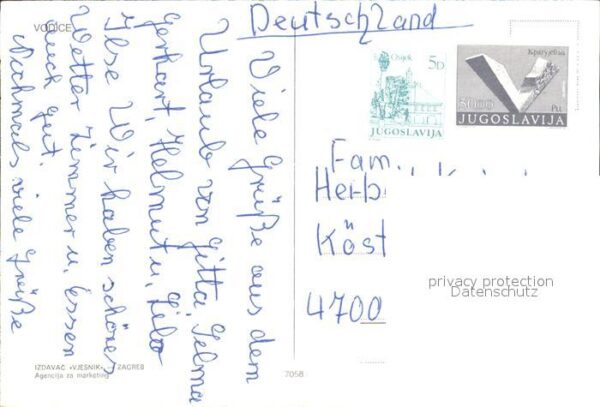 VODICE
Deutschland
Viele Grüße aus dem
Urlaub von Gitta, Selma
Gerhart, Helmut u. Lilo
Ilse Wir haben schönes
Wetter Zimmer u. Essen
auch gut.
Nichmals viele Grüße
Osijek
5D
JUGOSLAVIJA
8000
JUGOSLAVIJA
Fam.
Herb
Köst
4700
privacy protection
Datenschutz
IZDAVAČ »VJESNIK« — ZAGREB
Agencija za marketing
7058